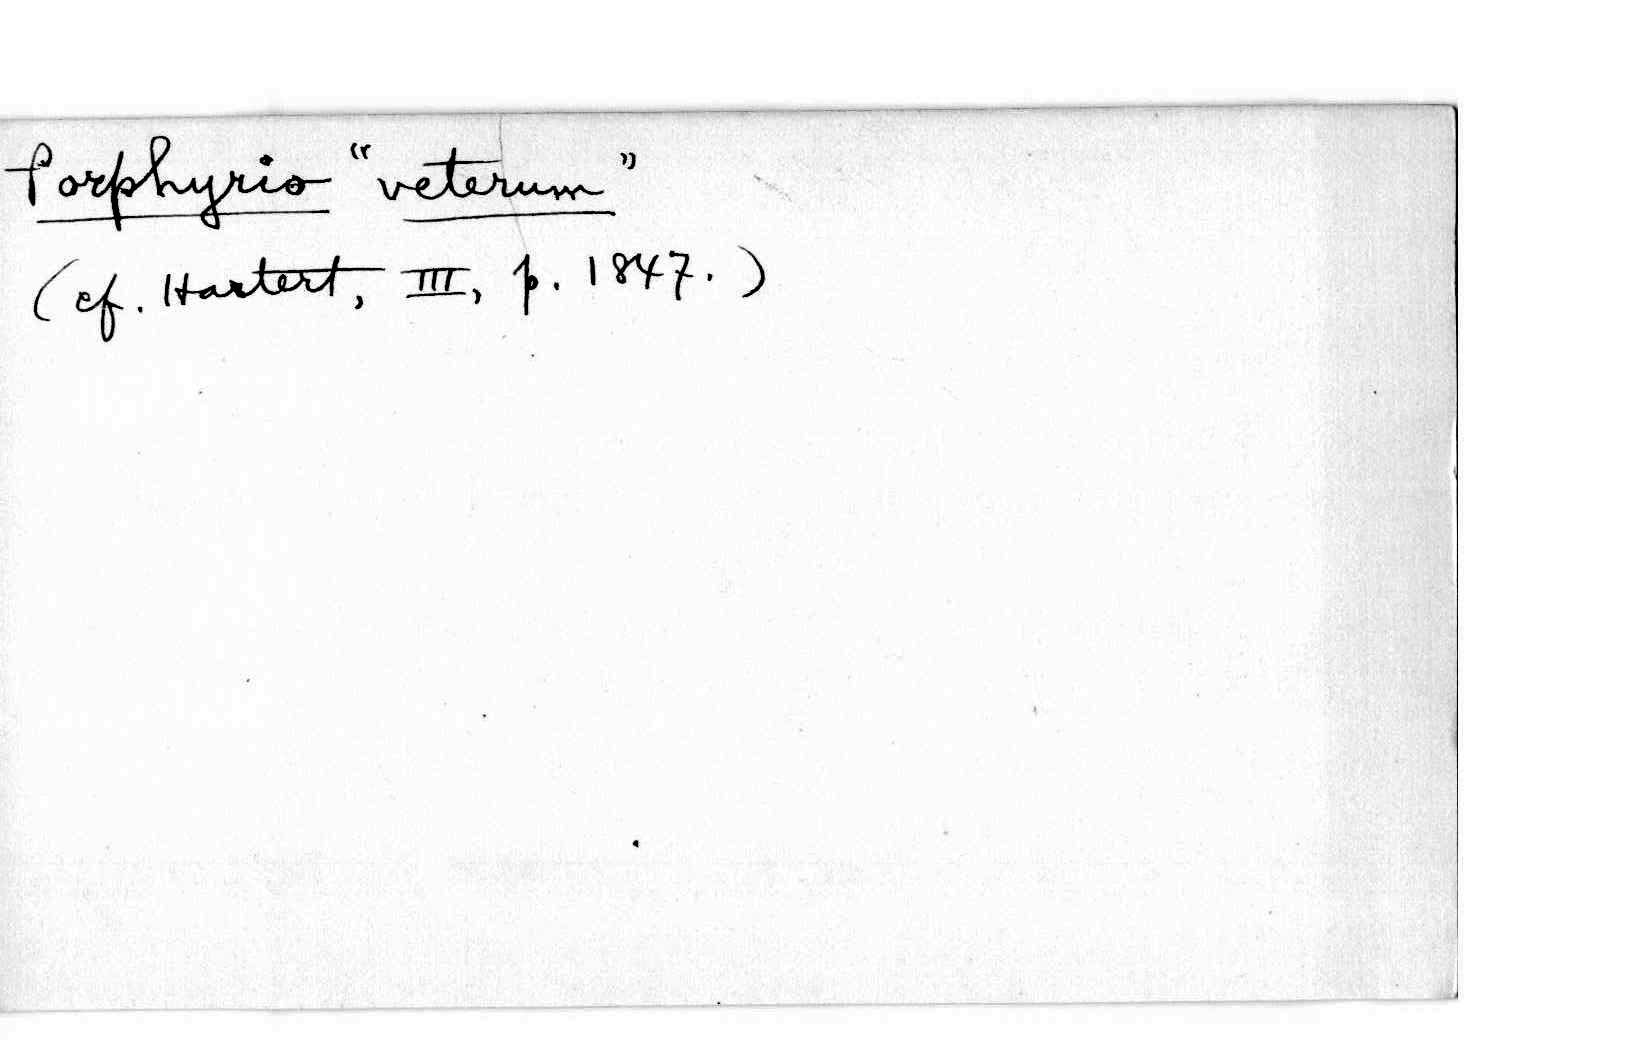 Porphyrio “veterum”
(cf. Hartert, III, p. 1847.)